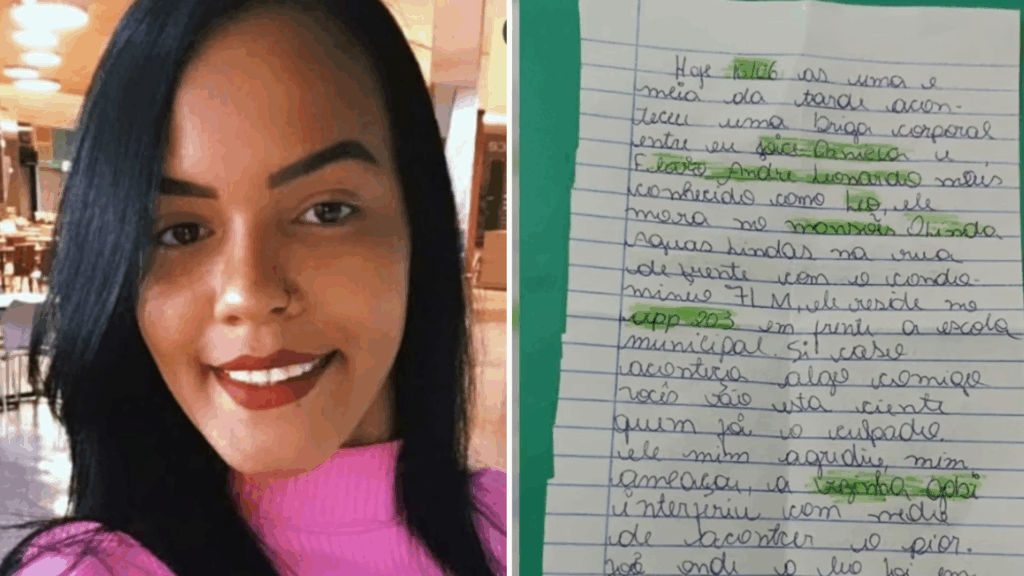 Hoje 13/06 as uma e
meia da tarde acon-
teceu uma briga corporal
entre eu Daniela e
André Leonardo mais
conhecido como Leo, ele
mora no mansões Olinda
Aguas Lindas na rua
de frente com o condo-
minio 7 LM, ele reside no
app 203 em frente a escola
municipal. Si caso
aconteça algo comigo
vocês vão esta ciente
quem foi o culpado.
ele mim agrediu, mim
ameaçou, a vizinha
interferiu com medo
de acontcer o pior.
onde o leo foi em